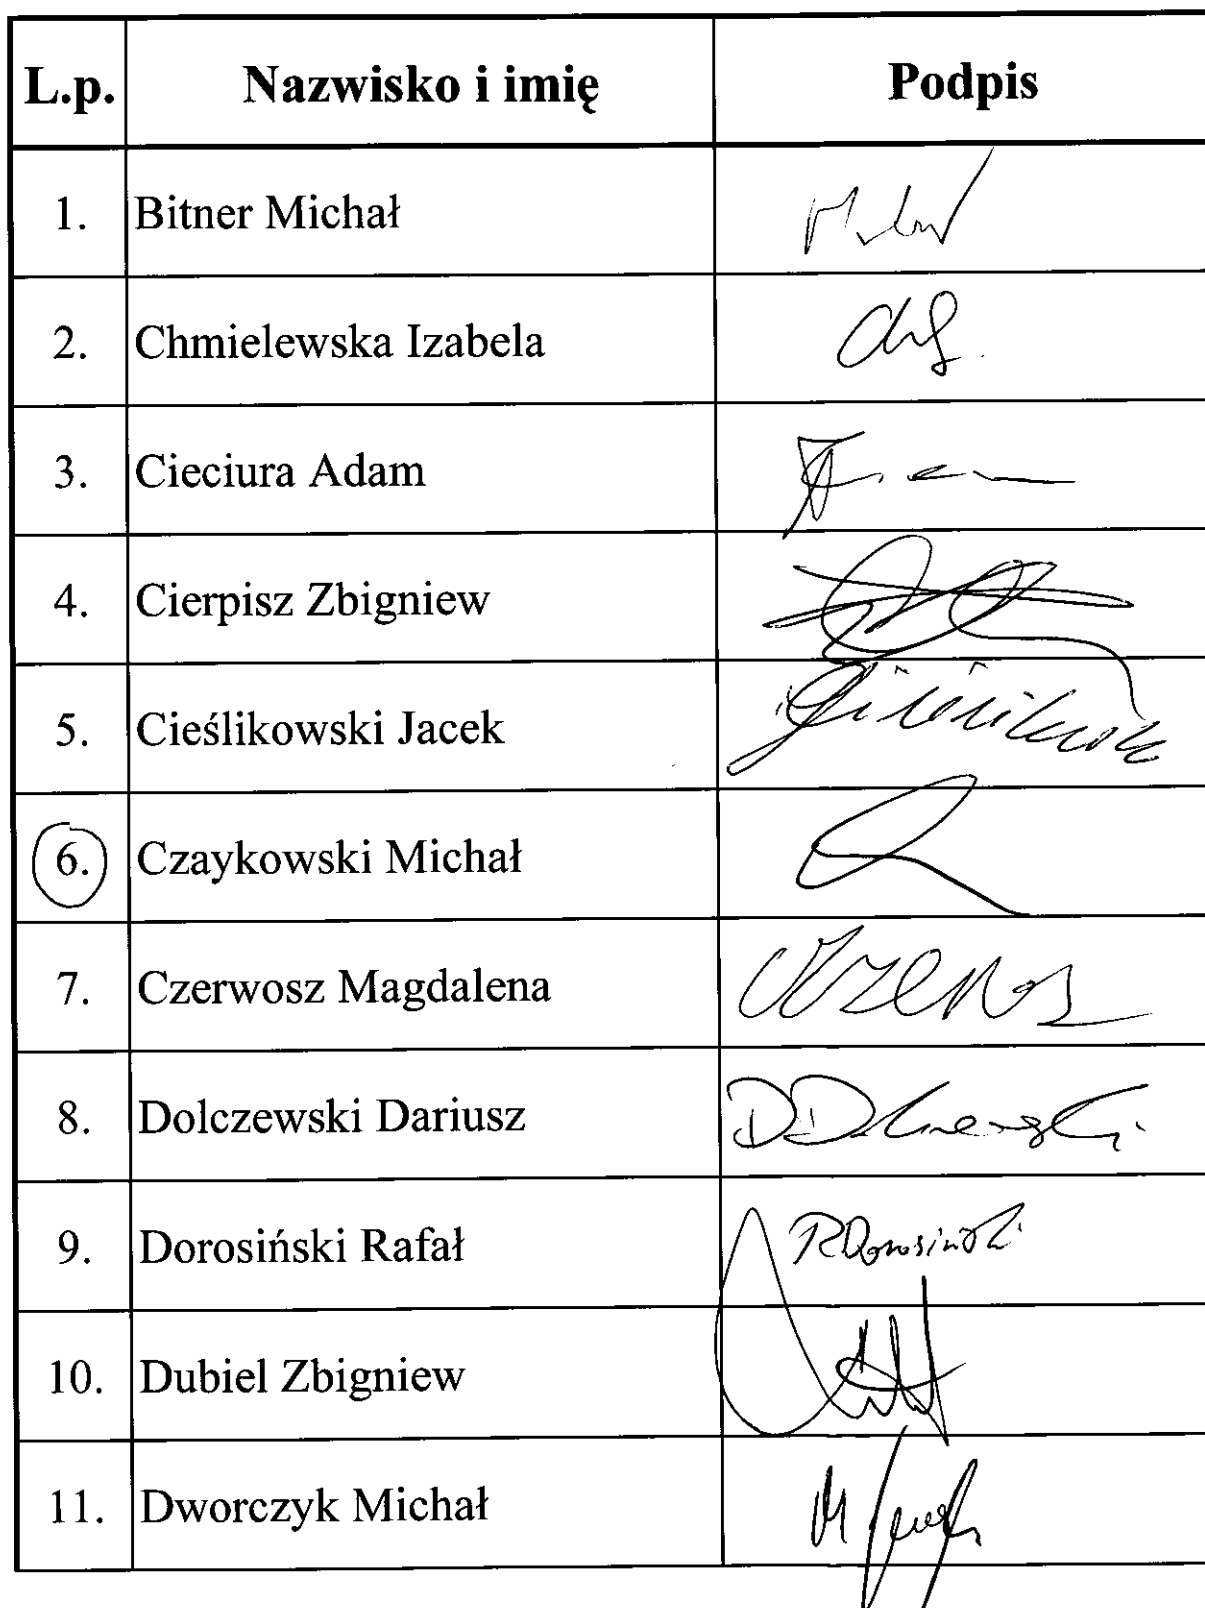 L.p. Nazwisko i imię Podpis
1. Bitner Michał
2. Chmielewska Izabela
3. Cieciura Adam
4. Cierpisz Zbigniew
5. Cieślikowski Jacek
6. Czaykowski Michał
7. Czerwosz Magdalena
8. Dolczewski Dariusz
9. Dorosiński Rafał RDorosiński
10. Dubiel Zbigniew
11. Dworczyk Michał